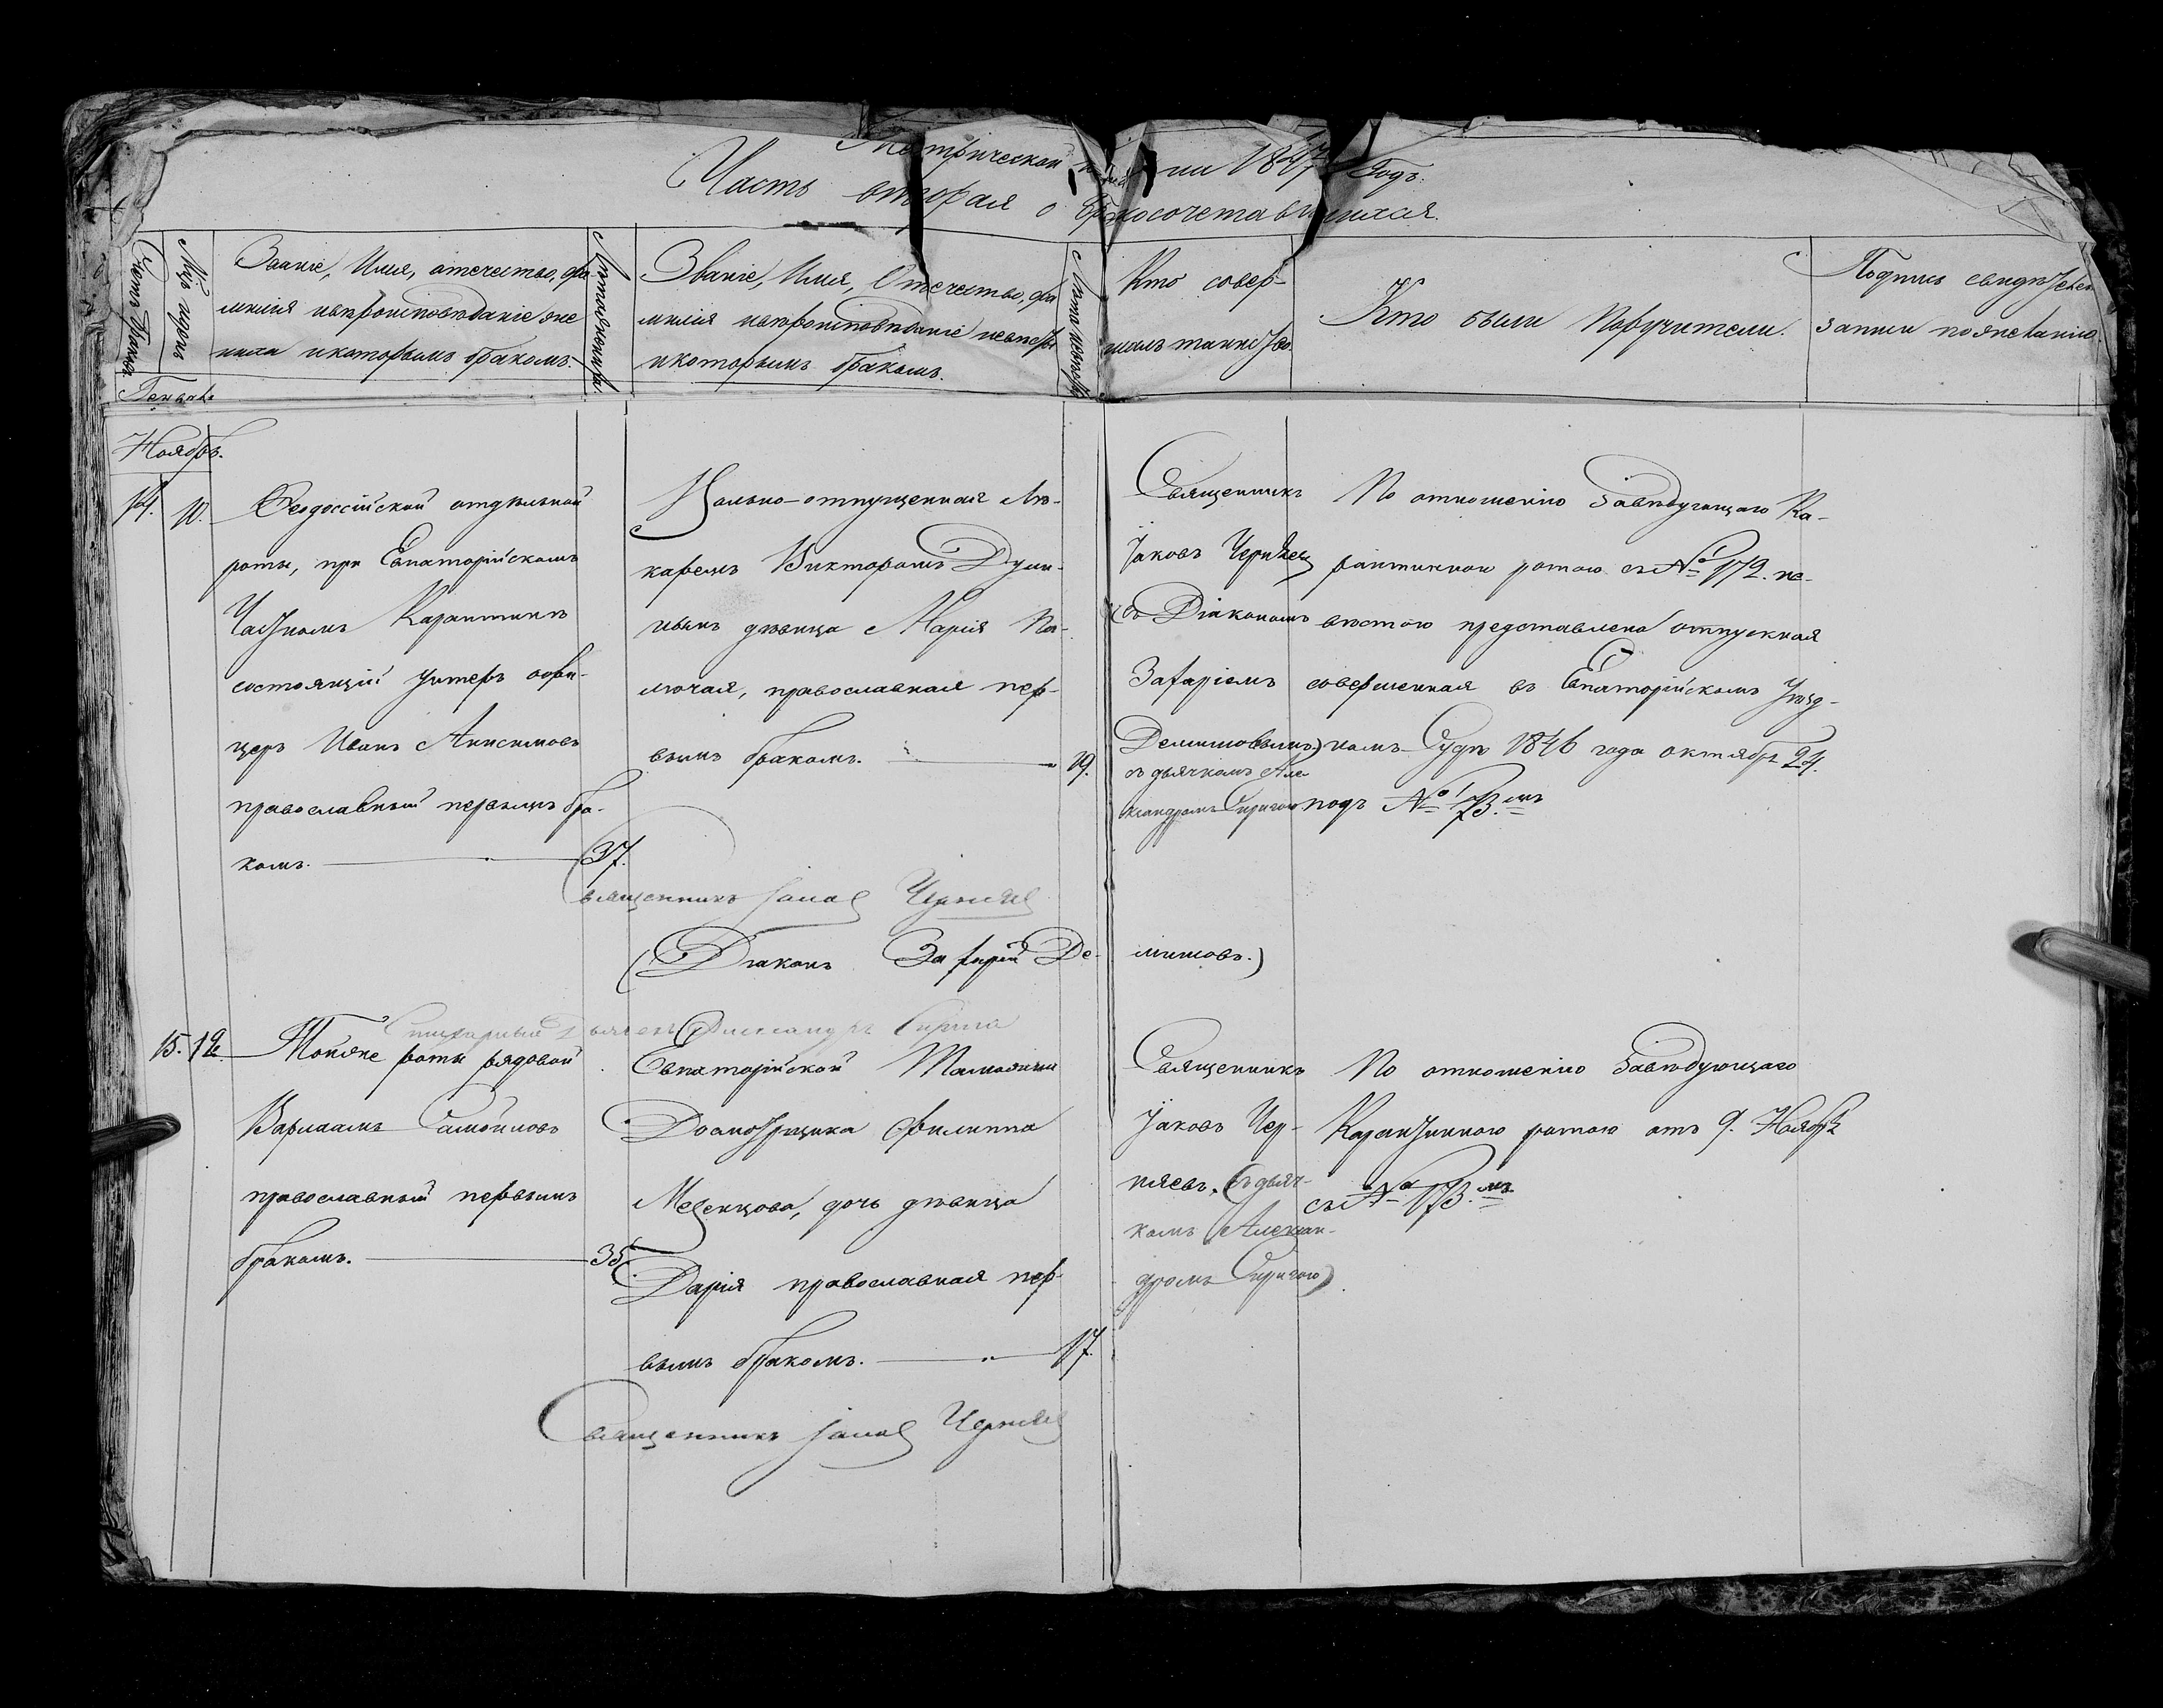 Метрической книги на 1847 Годъ.
Часть вторая о бракосочетавшихся.
Счетъ Браковъ
Мѣс. и день
Званіе, Имя, отечество, фа-
милія и вѣроисповѣданіе же-
ниха и которымъ бракомъ.
Лѣта жениха.
Званіе, Имя, Отечество, фа-
милія и вѣроисповѣданіе невѣсты
и которымъ бракомъ.
Лѣта невѣсты
Кто совер-
шалъ таинство
Кто были Поручители.
Подпись свидѣтелей
записи по желанію.
Ноябрь.
14. 10.
Ѳеодоссійской отдѣльной
роты, при Евпаторійскомъ
Частномъ Карантинѣ
состоящій унтеръ офи-
церъ Иванъ Анисимовъ
православный первымъ бра-
комъ. 37.
Вольно-отпущенная Лѣ-
каремъ Викторомъ
дѣвица Марія Па-
православная пер-
вымъ бракомъ. 19.
Священникъ
Іаковъ Черняев
(съ Діакономъ
Захаріемъ
Демишовымъ)
съ дьячкомъ Але-
ксандромъ
По отношенію Завѣдующаго Ка-
рантинною ротою съ № 172. не-
вѣстою представлена отпускная
совершенная въ Евпаторійскомъ Уѣзд-
номъ Судѣ 1846 года октября 24.
подъ № 173.мъ
Священникъ Іаковъ Черняев
(Діаконъ Захарій Де-
мишовъ.)
15. 12.
Тойже роты рядовой
Варлаамъ Самойловъ
православный первымъ
бракомъ. 35
Евпаторійской Таможни
Досмотрщика Филиппа
Мезенцова, дочь дѣвица
Дарія православная пер-
вымъ бракомъ. 17.
Священникъ
Іаковъ Чер-
няевъ. (съ дьяч-
комъ Алексан-
дромъ
По отношенію Завѣдующаго
Карантинною ротою отъ 9. Ноября
съ № 173.мъ
Священникъ Іаковъ Черняев